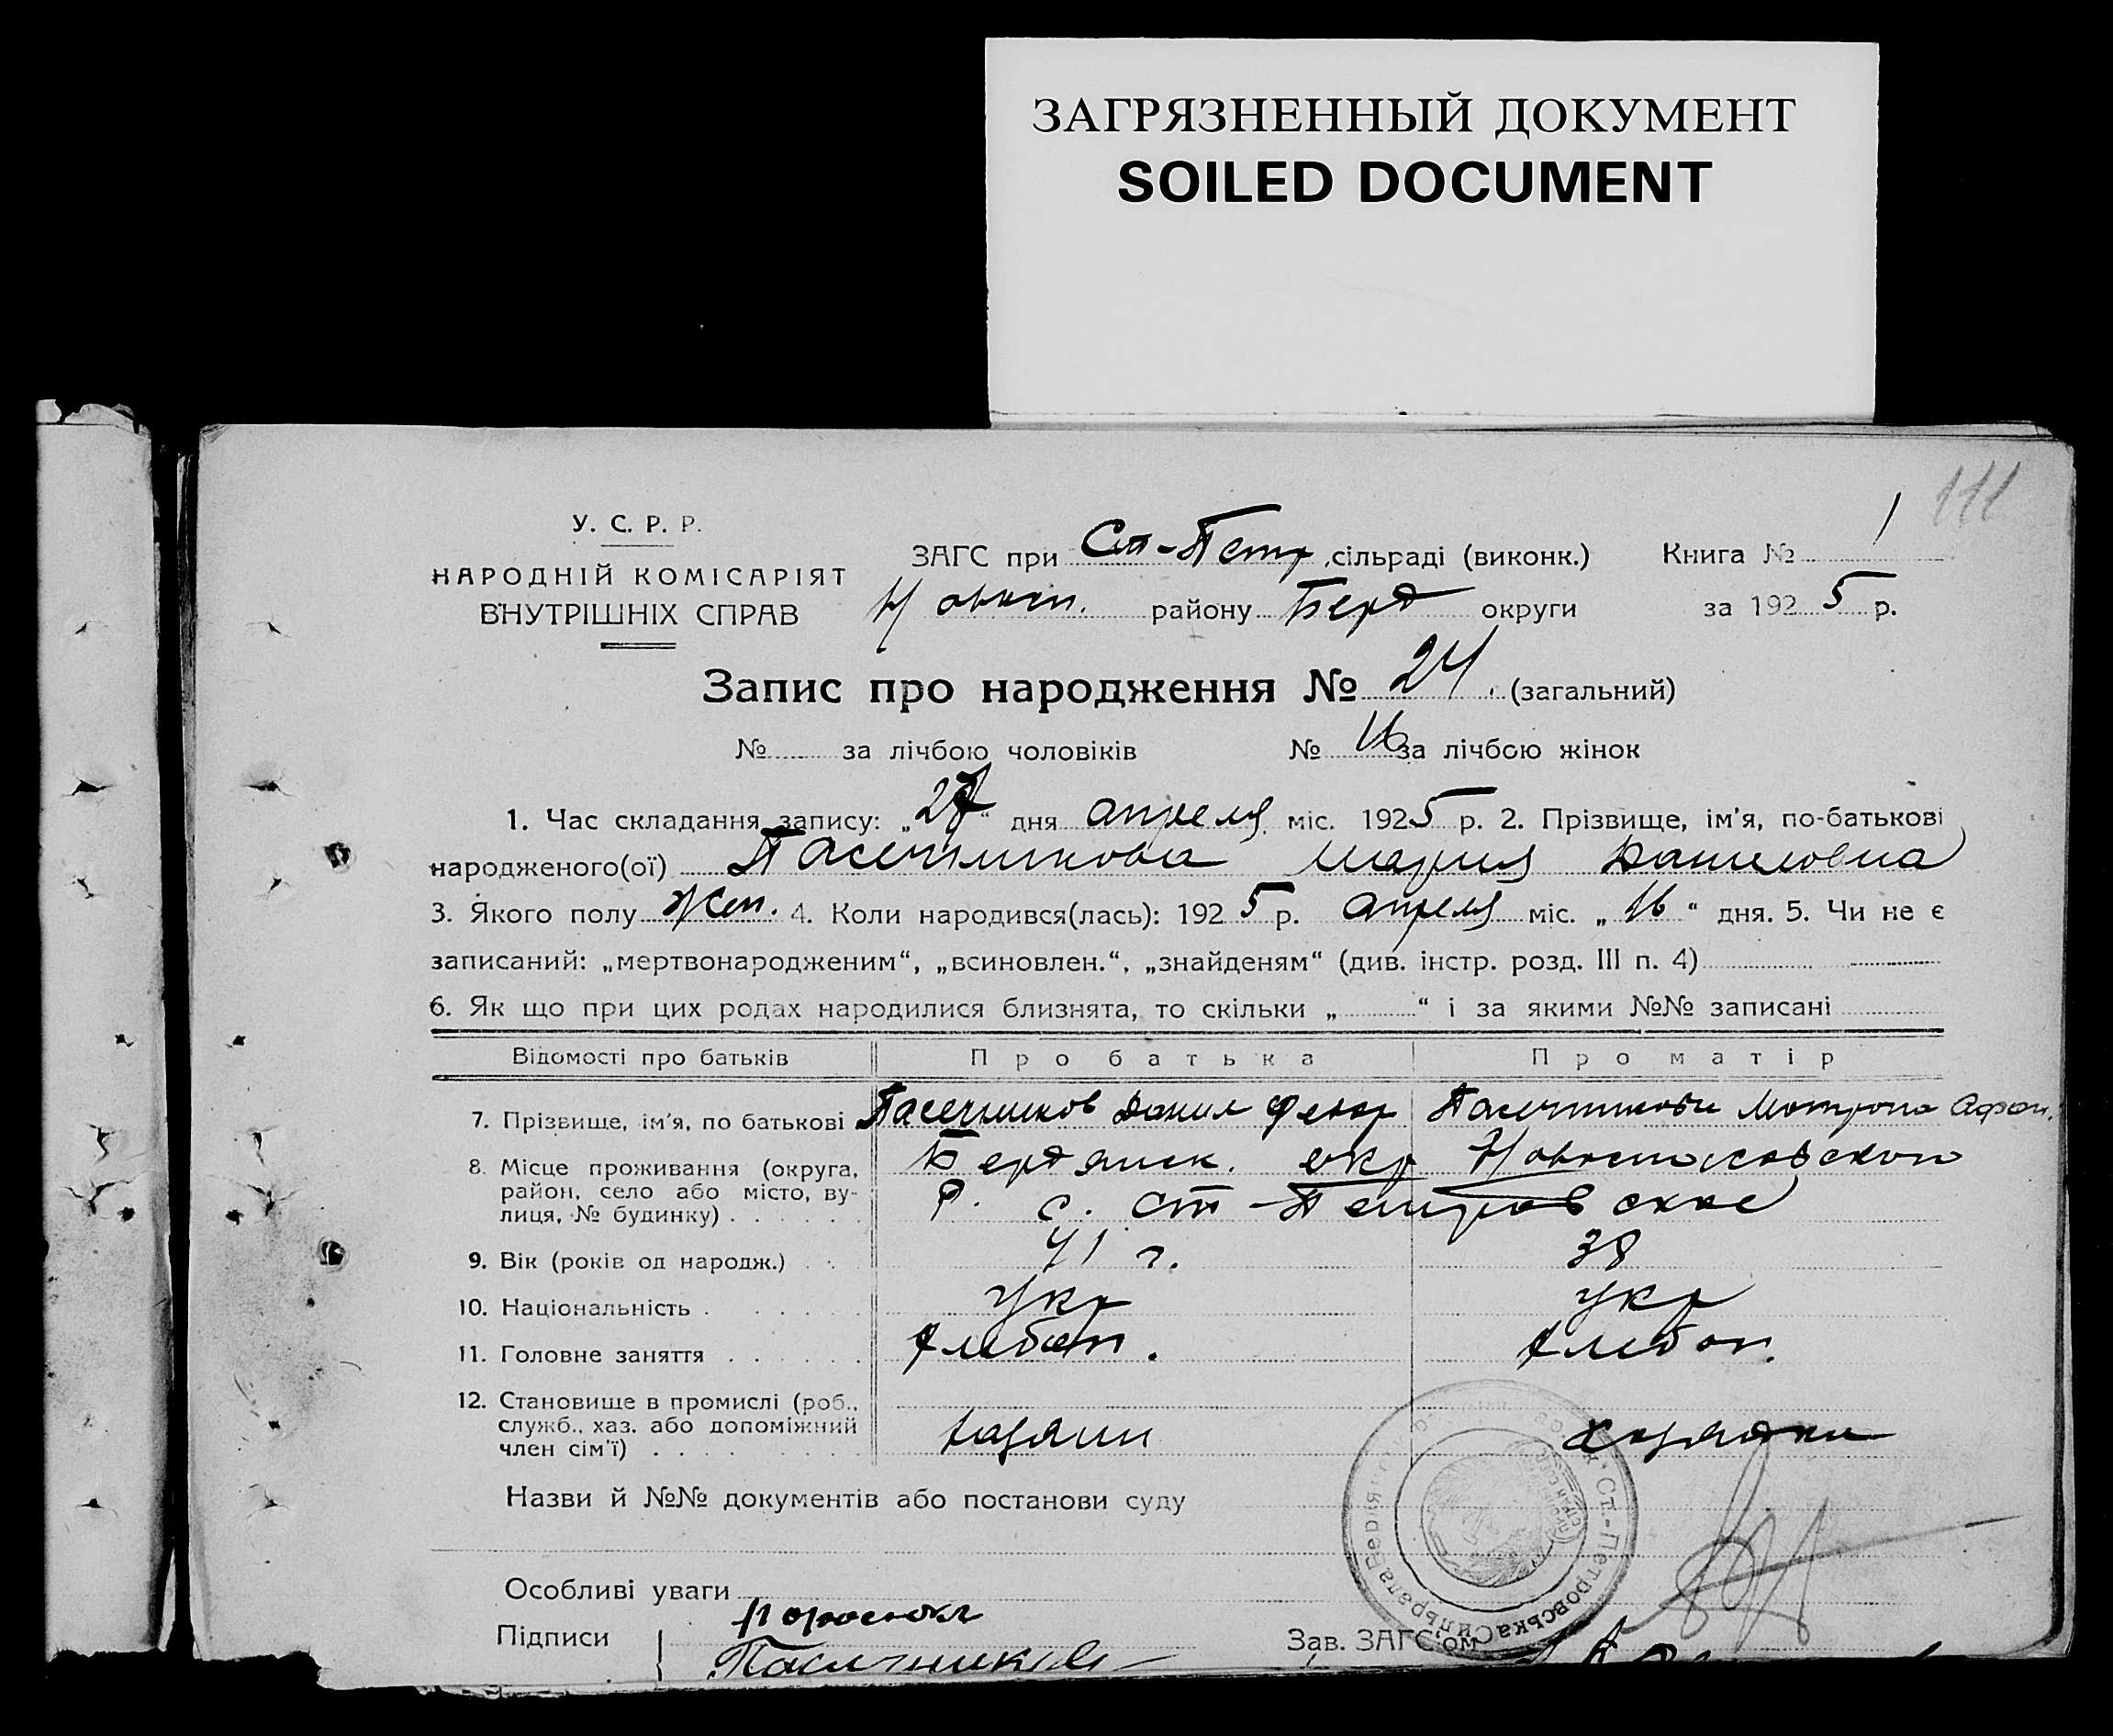 ЗАГРЯЗНЕННЫЙ ДОКУМЕНТ
SOILED DOCUMENT
111
У. С. Р. Р.
НАРОДНІЙ КОМІСАРІЯТ
ВНУТРІШНІХ СПРАВ
ЗАГС при Ст-Петр. сільраді (виконк.) Книга № 1
Новосп. району Берд округи за 1925 р.
Запис про народження № 24 (загальний)
№ за лічбою чоловіків № 16 за лічбою жінок
1. Час складання запису: „27“ дня апреля міс. 1925 р. 2. Прізвище, ім'я, по-батькові
народженого(ої) Пасечникова Мария Даниловна
3. Якого полу Жен. 4. Коли народився(лась): 1925 р. апреля міс. „16“ дня. 5. Чи не є
записаний: „мертвонародженим“, „всиновлен.“, „знайденям“ (див. інстр. розд. III п. 4)
6. Як що при цих родах народилися близнята, то скільки „ “ і за якими №№ записані
Відомості про батьків Про батька Про матір
7. Прізвище, ім'я, по батькові Пасечников Данил Федор Пасечникова Матрона Афан.
8. Місце проживання (округа, район, село або місто, вулиця, № будинку) Бердянск. окр Новоспасовского
р. с. Ст-Петровское
9. Вік (років од народж.) 41 г. 38
10. Національність укр укр
11. Головне заняття хлебоп. хлебоп.
12. Становище в промислі (роб.,
служб., хаз. або допоміжний
член сім'ї) хазяин хазяйка
Назви й №№ документів або постанови суду
Особливі уваги
Підписи
Пасечников
Зав. ЗАГС'ом
Ст.-Петровська Сильрада